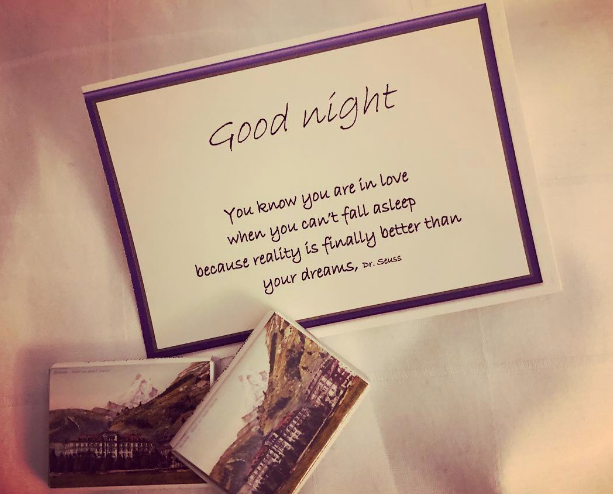 Good night
You know you are in love
when you can't fall asleep
because reality is finally better than
your dreams, Dr. Seuss